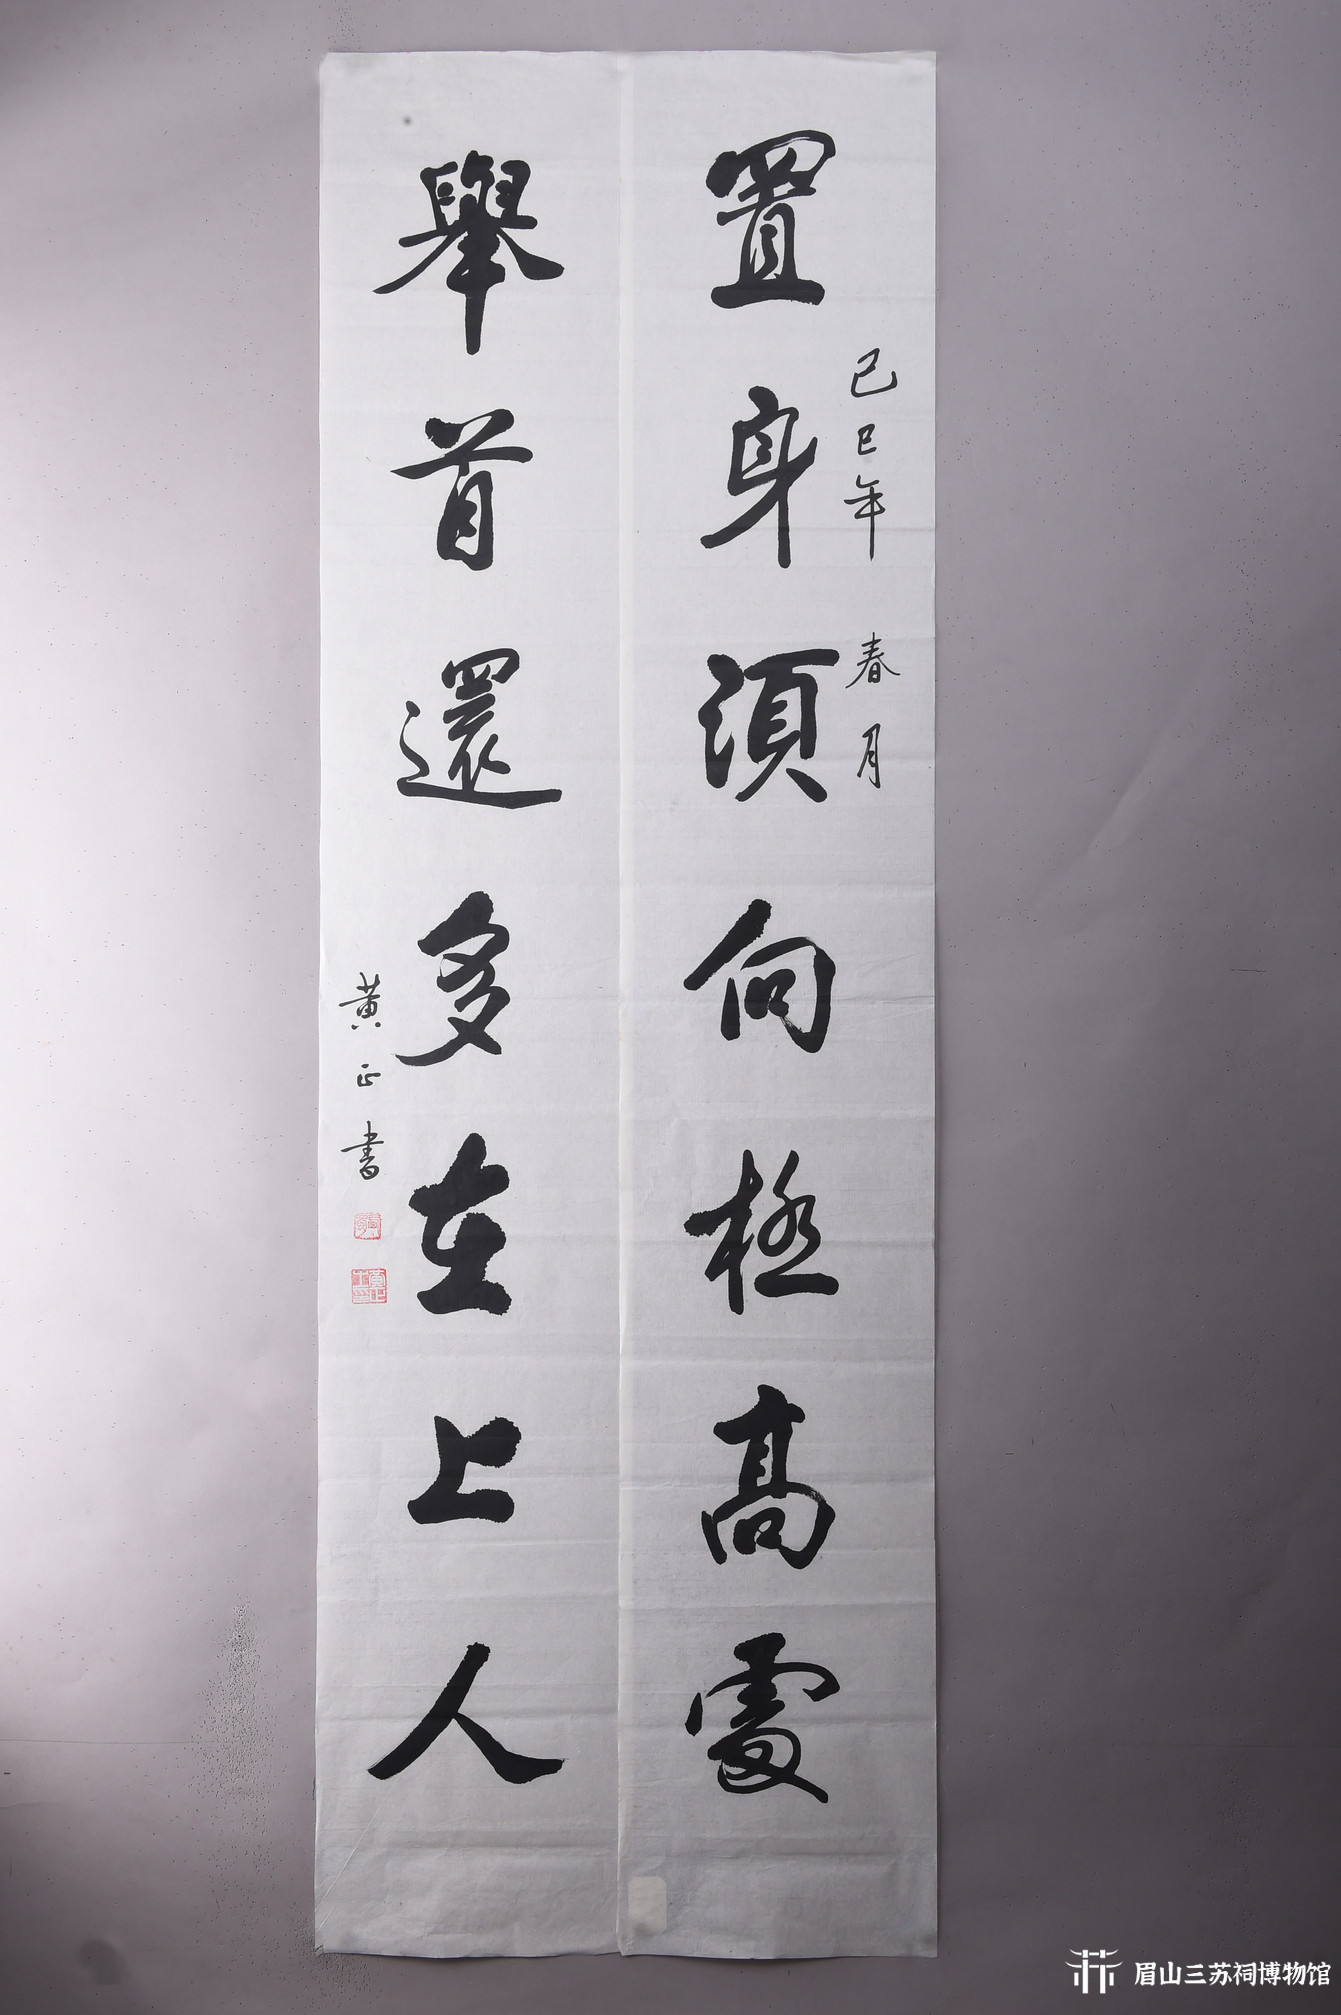 置身須向極高處
己巳年 春月
舉首還多在上人
黄正书
眉山三苏祠博物馆